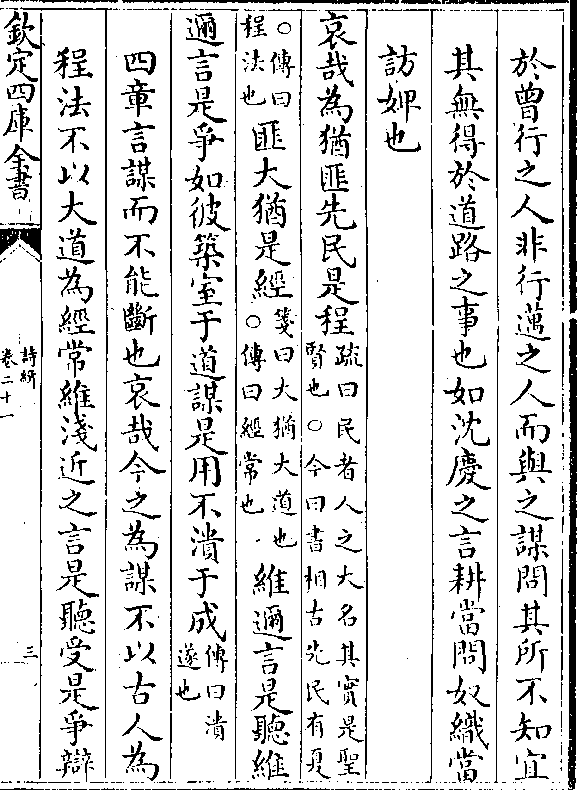 於曾行之人非行邁之人而與之謀問其所不知宜
其無得於道路之事也如沈慶之言耕當問奴織當
訪婢也
哀哉為猶匪先民是程疏曰民者人之大名其實是聖
賢也○今曰書相古先民有夏
○傳曰
程法也匪大猶是經箋曰大猶大道也
○傳曰經常也維邇言是聽維
邇言是爭如彼築室于道謀是用不潰于成傳曰潰
遂也
四章言謀而不能斷也哀哉今之為謀不以古人為
程法不以大道為經常維淺近之言是聽受是爭辯
欽定四庫全書
詩緝
卷二十一
三